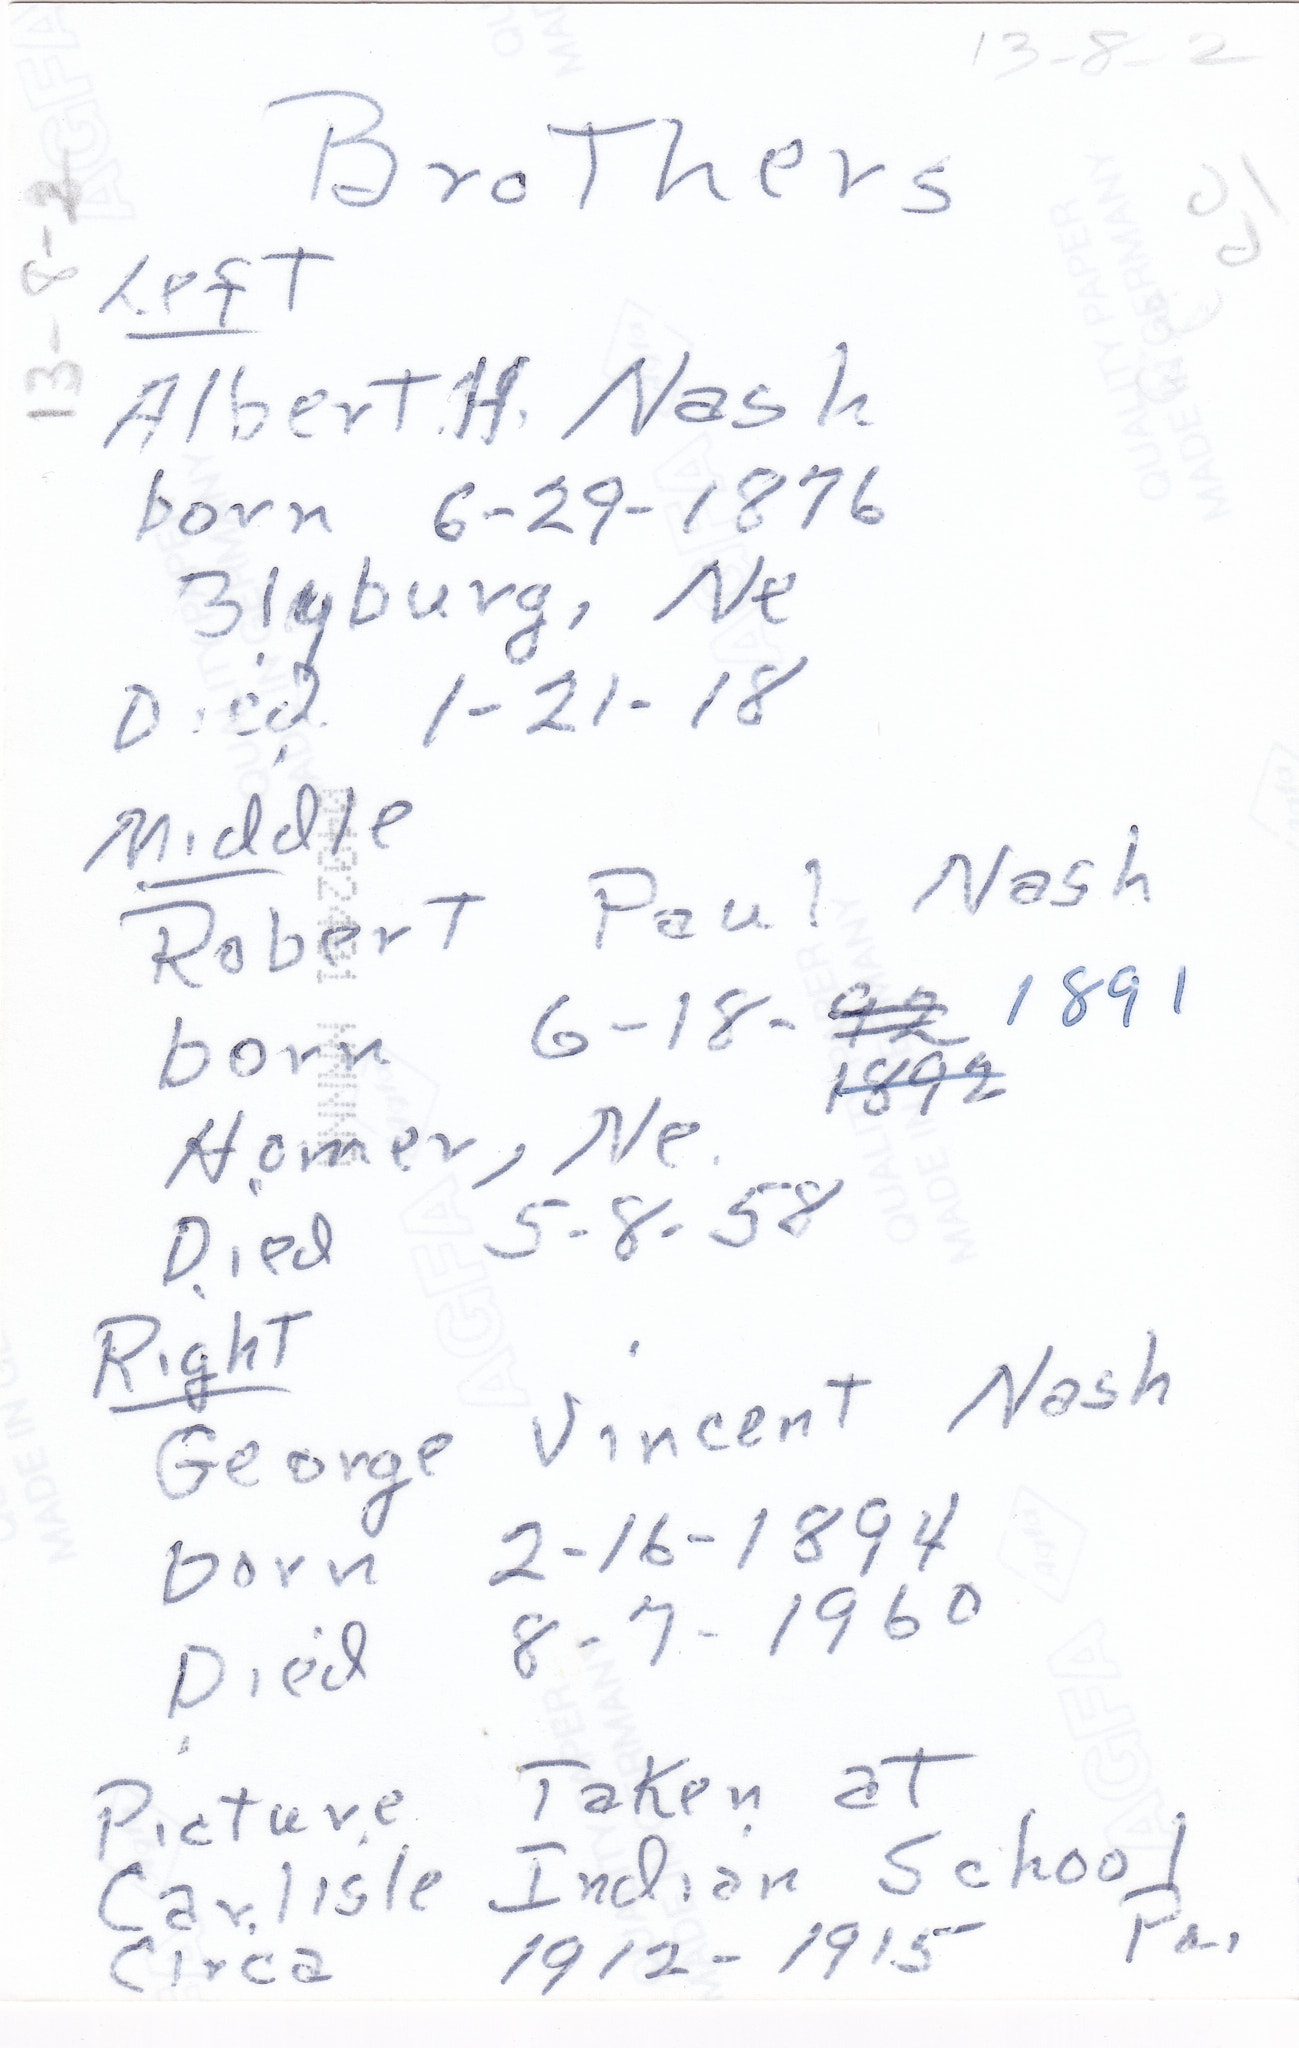 13-8-2
13-8-2
Brothers
Left
Albert H. Nash
born 6-29-1876
Blyburg, Ne
Died 1-21-18
Middle
Robert Paul Nash
born 6-18-92 1891
1892
Homer, Ne.
Died 5-8-58
Right
George Vincent Nash
born 2-16-1894
Died 8-7-1960
Picture Taken at
Carlisle Indian School
Pa.
Circa 1912-1915
AGFA
QUALITY PAPER
MADE IN GERMANY
AGFA
QUALITY PAPER
MADE IN GERMANY
AGFA
AGFA